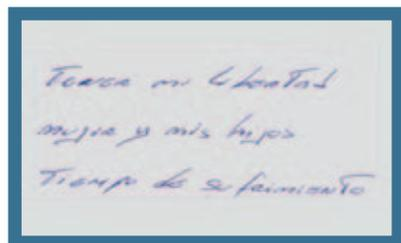 Tener mi libertad
mujer y mis hijos
Tiempo de sufrimiento